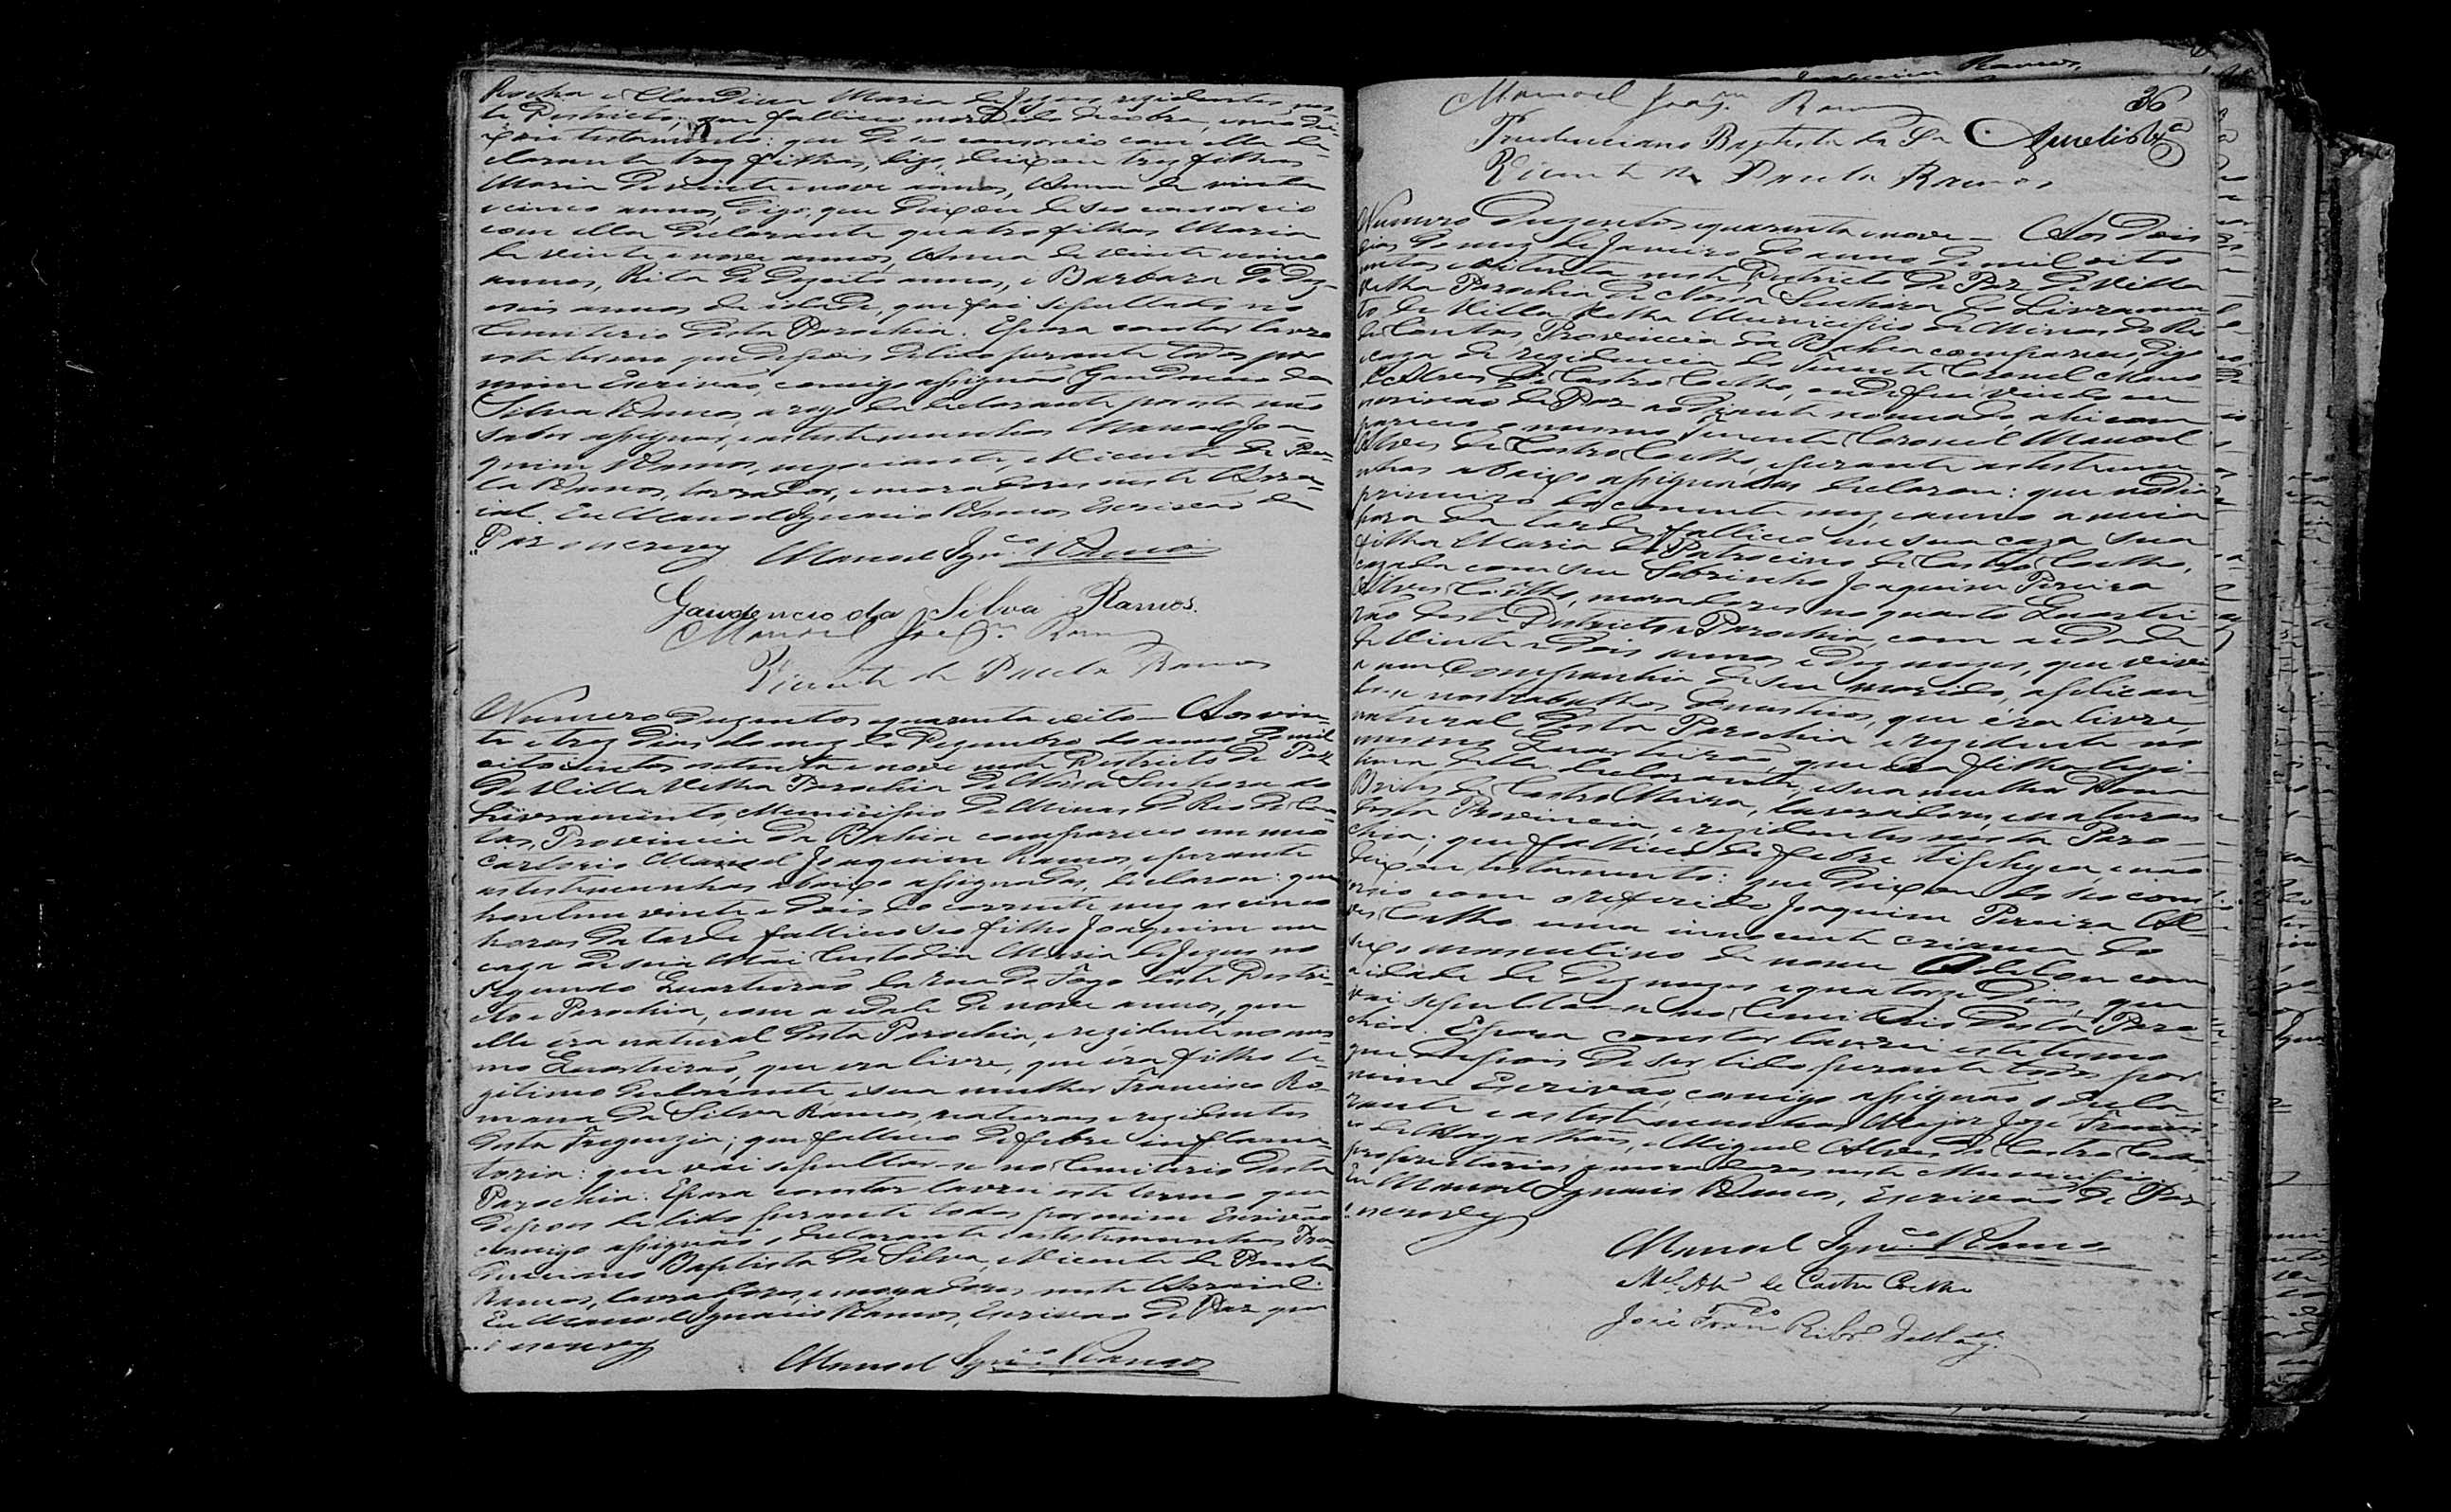 Rocha e Claudina Maria de Jezus rezidentes nes-
te Districto; que falleceo mordido de cobra, e não dei-
xou testamento: que de seo consorcio com ella de-
clarante trez filhas, digo, deixou trez filhas
Maria de vinte e nove annos, Anna de vinte
e cinco annos, digo, que deixou de seo consorcio
com ella declarante quatro filhas Maria
de vinte e nove annos, Anna de vinte e cinco
annos, Rita de dezoito annos, e Barbara de dez-
seis annos de idade, que foi sepultado no
Cemiterio desta Parochia. E para constar lavro
este termo que depois de lido perante todos por
mim Escrivão, comigo assignão Gaudencio da
Silva Ramos, a rogo da declarante por esta não
saber assignar, e as testemunhas Manoel Joa-
quim Ramos, negociante, e Vicente de Pau-
la Ramos, lavrador, e moradores neste Arra-
ial. Eu Manoel Ignacio Ramos Escrivão de
Paz o escrevy Manoel Ign.co Ramos
Gaudencio da Silva Ramos.
Manoel Joaq.m Ramos
Vicente de Paula Ramos
Numero duzentos e quarenta e oito — Aos vin-
te e trez dias do mez de Dezembro do anno de mil
oitocentos e setenta e nove neste Districto de Paz
de Villa Velha Parochia de Nossa Senhora do
Livramento, Municipio de Minas do Rio de Con-
tas, Provincia da Bahia compareceo em meo
Cartorio Manoel Joaquim Ramos e perante
as testemunhas abaixo assignadas, declarou: que
hontem vinte e dois do corrente mez as cinco
horas da tarde falleceo seo filho Joaquim em
caza de sua Mai Custodia Maria de Jezus no
Segundo Quarteirão da rua do Fogo deste Distri-
cto e Parochia, com a idade de nove annos, que
elle éra natural desta Parochia, e rezidente no mes-
mo Quarteirão, que era livre, que éra filho le-
gitimo declarante e sua mulher Francisca Ro-
mana da Silva Ramos, naturaes e rezidentes
desta Freguezia; que falleceo de febre inflama
toria: que vai sepultar-se no Cemiterio desta
Parochia. E para constar lavrei este termo que
depois de lido perante todos por mim Escrivão
comigo assignão o declarante e as testemunhas Pru
denciano Baptista da Silva, e Vicente de Paula
Ramos, lavradores, e moradores neste Arraial.
Eu Manoel Ignacio Ramos, Escrivão de Paz que
o escrevy
Manoel Ign.co Ramos
36
Manoel Joaq.m Ramos
Prudenciano Baptista da S.a
Vicente de Paula Ramos
Numero Duzentos e quarenta e nove — Aos dois
dias do mez de Janeiro do anno de mil oito
centos e oitenta neste Districto de Paz de Villa
Velha Parochia de Nossa Senhora do Livramen
to, de Villa Velha Municipio de Minas do Rio
de Contas, Provincia da Bahia compareceo, digo
caza de rezidencia do Tenente Coronel Mano
el Alves de Castro Coelho, onde fui vindo eu
Escrivão de Paz ao diante nomeado, ahi com
pareceo o mesmo Tenente Coronel Manoel
Alves de Castro Coelho, e perante as testemu
nhas abaixo assignadas declarou: que no dia
primeiro do corrente mez e anno a meia
hora da tarde falleceo em sua caza sua
filha Maria do Patrocinio de Castro Coelho,
cazada com seu Sobrinho Joaquim Pereira
Alves Coelho, moradores no quarto Quartei
rão deste Districto e Parochia, com a idade
de vinte e dois annos e dez mezes, que vivi
a em companhia de seu marido, applican
do-se nos trabalhos domesticos, que éra livre,
natural desta Parochia e rezidente no
mesmo Quarteirão, que era filha legi-
tima delle declarante e sua mulher Dona
Brites de Castro Meira, lavradores, e naturaes
desta Provincia, e rezidentes nesta Paro-
chia; que falleceo de febre tiphyca, e não
deixou testamento: que deixou de seo con-
sorcio com o referido Joaquim Pereira Al-
ves Coelho uma innocente criança do
sexo masculino de nome Odilon com
a idade de dez mezes e quatorze dias, que
vai sepultar-se no Cemiterio desta Paro-
chia. E para constar lavrei este termo
que depois de ser lido perante todos por
mim Escrivão, comigo assignão o decla-
rante e as testemunhas Major José Francis
co de Magalhães, e Miguel Alves de Castro
proprietarios e moradores neste Municipio.
Eu Manoel Ignacio Ramos, Escrivão de Paz
o escrevy
Manoel Ign.co Ramos
M.el Alz de Castro Coelho
José Fran.co Ribr.o de Mag.